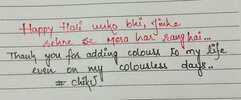 Happy Holi unko bhi, jinke
sehne se Mera har rang hai...
Thank you for adding colours to my life
even on my colousless days..
# Chikū